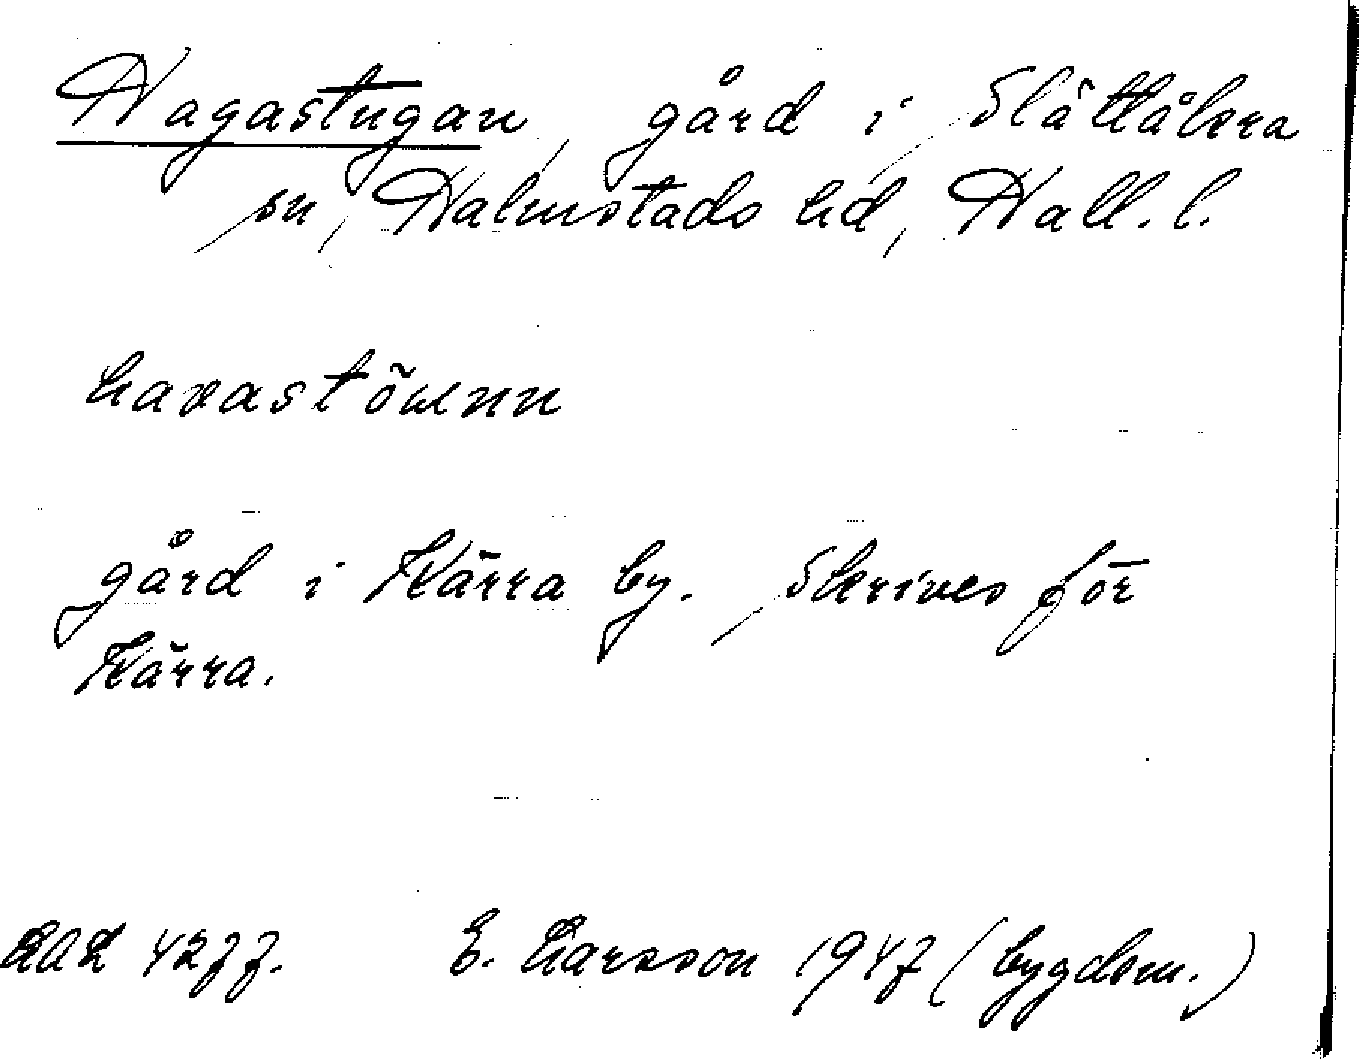 Hagastugan, gård i Slättåkra
sn, Halmstads hd, Hall. l.
havastöwnn
gård i Kärra by. Skrives för
Kärra.
4277. E. Larsson 1947 (bygdem.)